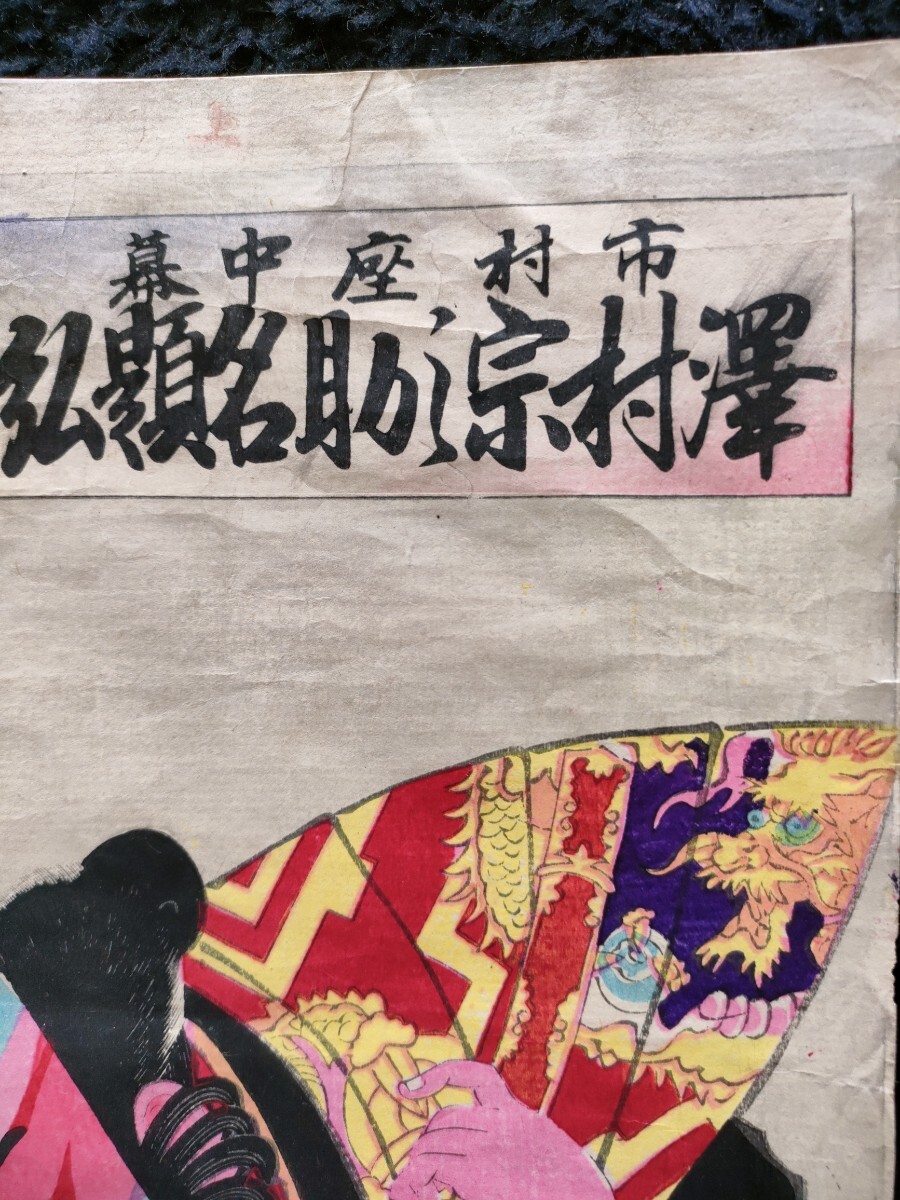 上
市村座中幕
澤村宗之助名顕弘